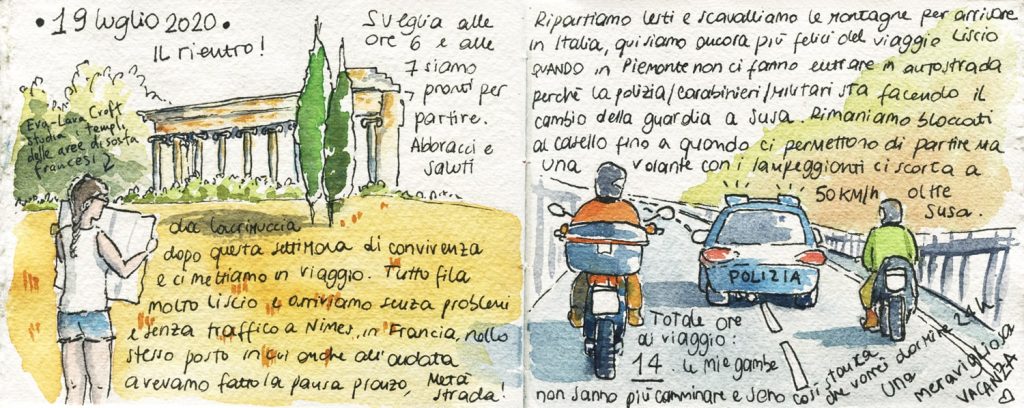 • 19 luglio 2020 •
Il rientro!
Eva-Lara Croft
studia i templi
delle aree di sosta
francesi
Sveglia alle
ore 6 e alle
7 siamo
pronti per
partire.
Abbracci e
saluti
da lacrimuccia
dopo questa settimana di convivenza
e ci mettiamo in viaggio. Tutto fila
molto liscio e arriviamo senza problemi
e senza traffico a Nimes, in Francia, nello
stesso posto in cui anche all'andata
avevamo fatto la pausa pranzo, metà
strada!
Ripartiamo lesti e scavalliamo le montagne per arrivare
in Italia, qui siamo ancora più felici del viaggio liscio
QUANDO in Piemonte non ci fanno entrare in autostrada
perchè la polizia/carabinieri/militari sta facendo il
cambio della guardia a Susa. Rimaniamo bloccati
al casello fino a quando ci permettono di partire ma
una volante con i lampeggianti ci scorta a
50 KM/h oltre
Susa.
POLIZIA
Totale ore
di viaggio:
14. Le mie gambe
non sanno più camminare e sono così stanca
che vorrei dormire 24 h.
Una
meravigliosa
VACANZA